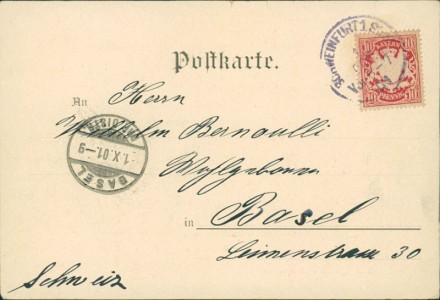 SCHWEINFURT 1
BAYERN
10 10
PFENNIG
Postkarte.
An Herrn
Wilhelm Bernoulli
Wohlgeboren
in Basel
Leimenstrasse 30
Schweiz
BASEL
1.X.01.-9